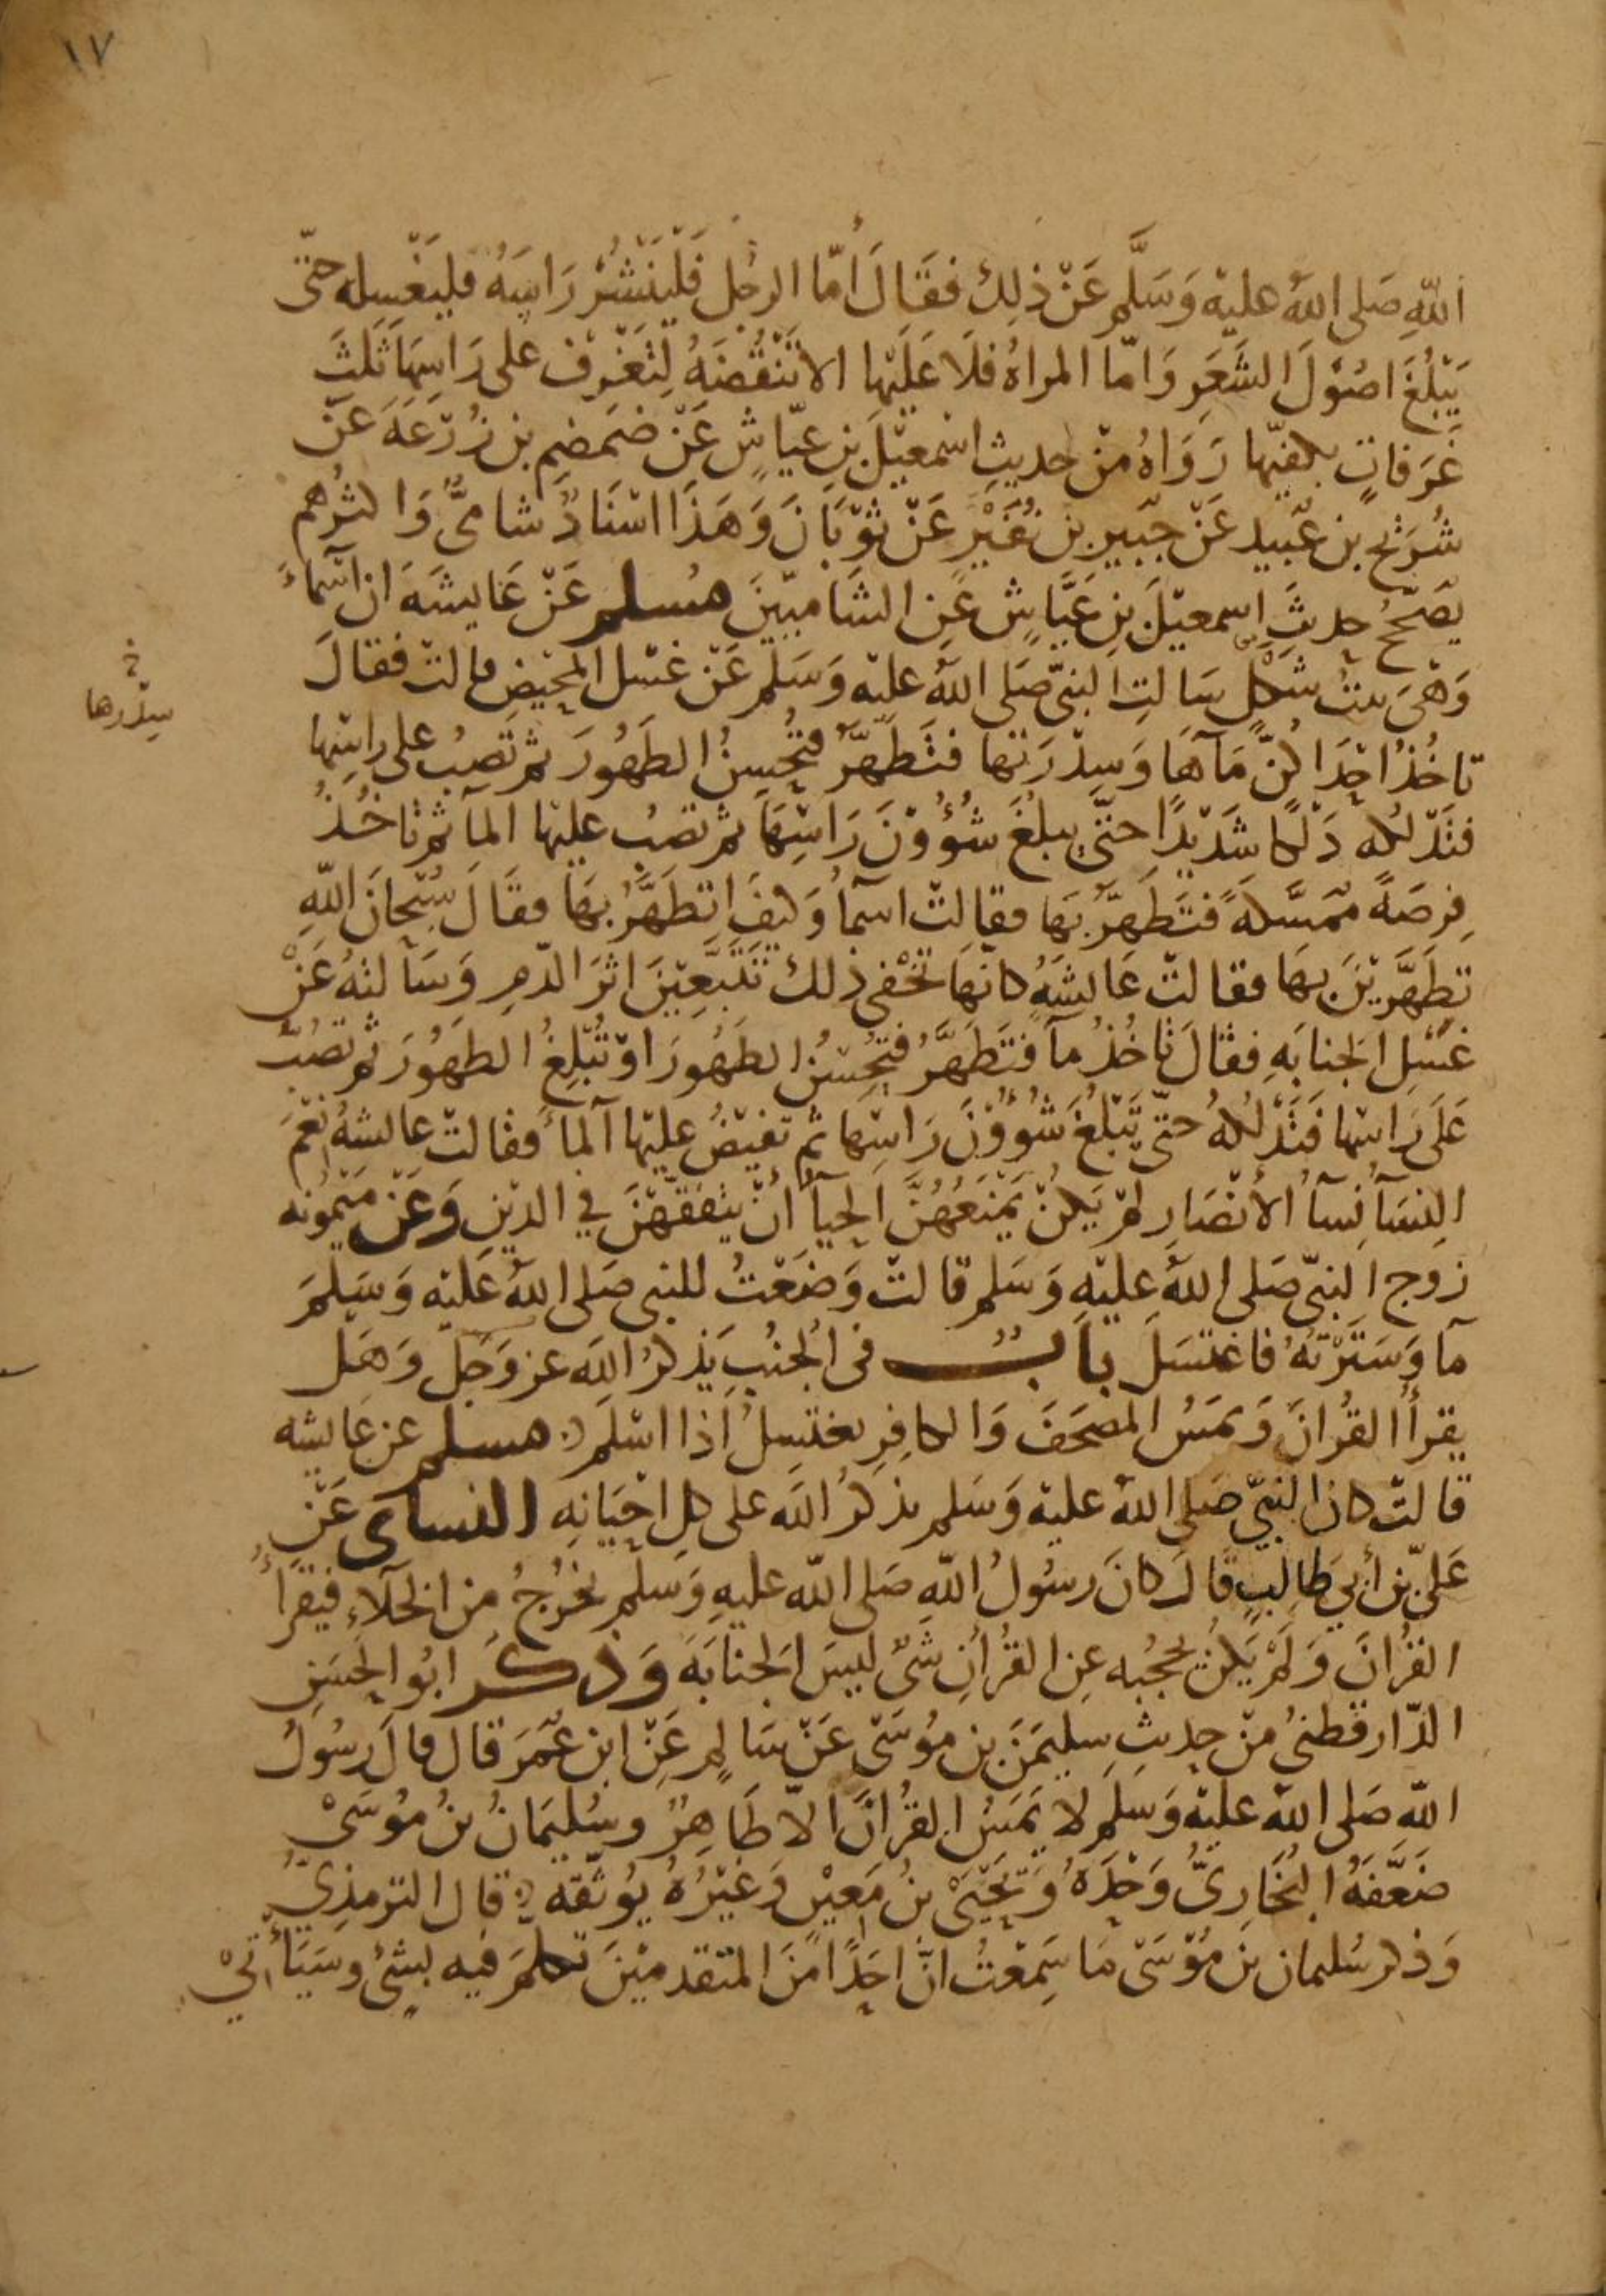 ١٧
الله صَلى الله عليه وَسَلَّم عَنْ ذلِك فقَال أمّا الرجُل فَلْيَنْشُرْ رَاسَهُ فليَغْسِله حتّى
يَبْلُغَ اصُوْلَ الشَعَرِ وَامّا المراةُ فلَا عَلَيْها الا تَنْقُضَهُ لِتَغْرِف على رَاسِهَا ثَلثَ
غَرَفاتٍ بكفيّها رَوَاهُ مِنْ حديثِ اسْمعيْلَ بنِ عيّاشٍ عَنْ ضَمضمِ بن زُرْعَةَ عَنْ
شُرَيْح بن عُبَيد عَنْ جُبَير بن نُفَيْرٍ عَنْ ثوْبَانَ وَهَذَا اسْنَادٌ شامىٌّ وَاكثرُهم
يصَحّحُ حديثَ اسمعيْلَ بنِ عَيَّاشٍ عَنِ الشَاميّينَ مسلم عَنْ عَايشَةَ ان اسْمآءَ
وَهْىَ بنتُ شَكَلٍ سَالتِ النبىّ صَلى اللهُ عليْه وَسَلَّم عَنْ غسْل المحيْضِ قالتْ فقالَ
تاخُذُ احْدَاكُنَّ مَآهَا وَسِدْرَتها فتَطَهَّرُ فتُحْسِنُ الطَهُورَ ثم تَصِبُ على راسِها
سِدْرها خ
فتَدْلُكه دَلْكًا شَدِيْدًا حتّى يبلغَ شُؤُوْنَ رَاسِهَا ثم تصُب عليْها المآ ثم تاخُذُ
فِرصَةً ممَسَّكَةً فتَطَهَّرُ بهَا فقالتْ اسمآُ وَكيفَ اتطَهَّرُ بهَا فقَالَ سُبْحَانَ اللهِ
تطَهَّرِيْنَ بهَا فقالتْ عَايشَةُ كانهَا تخْفى ذلك تتَبَّعِيْنَ اثرَ الدّمِ وَسَألتهُ عَنْ
غسْلِ الجنابَةِ فقالَ تاخُذُ مآً فتَطَهَّرُ فتُحْسنُ الطَهُورَ اوْ تُبْلِغُ الطهُورَ ثم تصُبُّ
عَلَى رَاسِها فَتَدْلُكهُ حتّى تَبْلُغَ شُوُوْنَ رَاسِها ثم تفيْضُ عليْها المآَ فقالتْ عايشةُ نِعْمَ
النِسَآُ نسآُ الأنْصَار لمْ يَكنْ يَمْنَعُهُنَّ الحيآُ أنْ يتفَقّهْنَ فى الديْنِ وَعَنْ ميْمُونه
زوج النبىّ صَلى اللهُ عليْهِ وَسَلم قالتْ وَضَعْتُ للنبى صَلى اللهُ عَليْه وَسَلمَ
مآ وَسَتَرْتهُ فاغتسَلَ بابٌ فى الجنُبِ يَذكرُ اللهَ عز وَجَلّ وَهَل
يقرأ القُرانَ وَيمَسُ المصْحَفَ وَالكافِرِ يغتسِلُ اذا اسْلَمَ مسلم عن عايشه
قالتْ كان النبىّ صَلى اللهُ عليْه وَسَلم يذكرُ اللهَ على كلِ احْيَانِه النساى عَنْ
عَليّ بن أبي طَالِبٍ قَالَ كانَ رسُولُ اللهِ صَلى الله عليهِ وَسلم يَخرُجُ مِن الخَلآءِ فيَقرَأُ
القرْانَ وَلَمْ يَكنْ يحجُبه عنِ القُرأنِ شَىٌ ليسَ الجَنابَةَ وَذكَرَ ابُو الحسَنِ
الدّارقطنىُ مِنْ حديثِ سليمَنَ بنِ مُوْسَى عَنْ سَالمٍ عَنِ ابن عُمَرَ قال قالَ رسُولُ
اللهِ صَلى اللهُ عليْه وَسلم لا يَمَسُ القُرانَ الّا طَاهِرٌ وسُليمَانُ بنُ مُوْسَىْ
ضَعَّفَهُ البُخَارِىُّ وَحْدَهُ وَيَحْيَى بنُ مَعيْنٍ وَغيْرُهُ يُوثقه قال الترمذِىُّ
وَذكر سُليمان بنَ مُوْسَى مَا سَمِعْتُ انّ احَدًا مِنَ المتقدميْنَ تكلمَ فيه بشىْءٍ وسَيَأتي